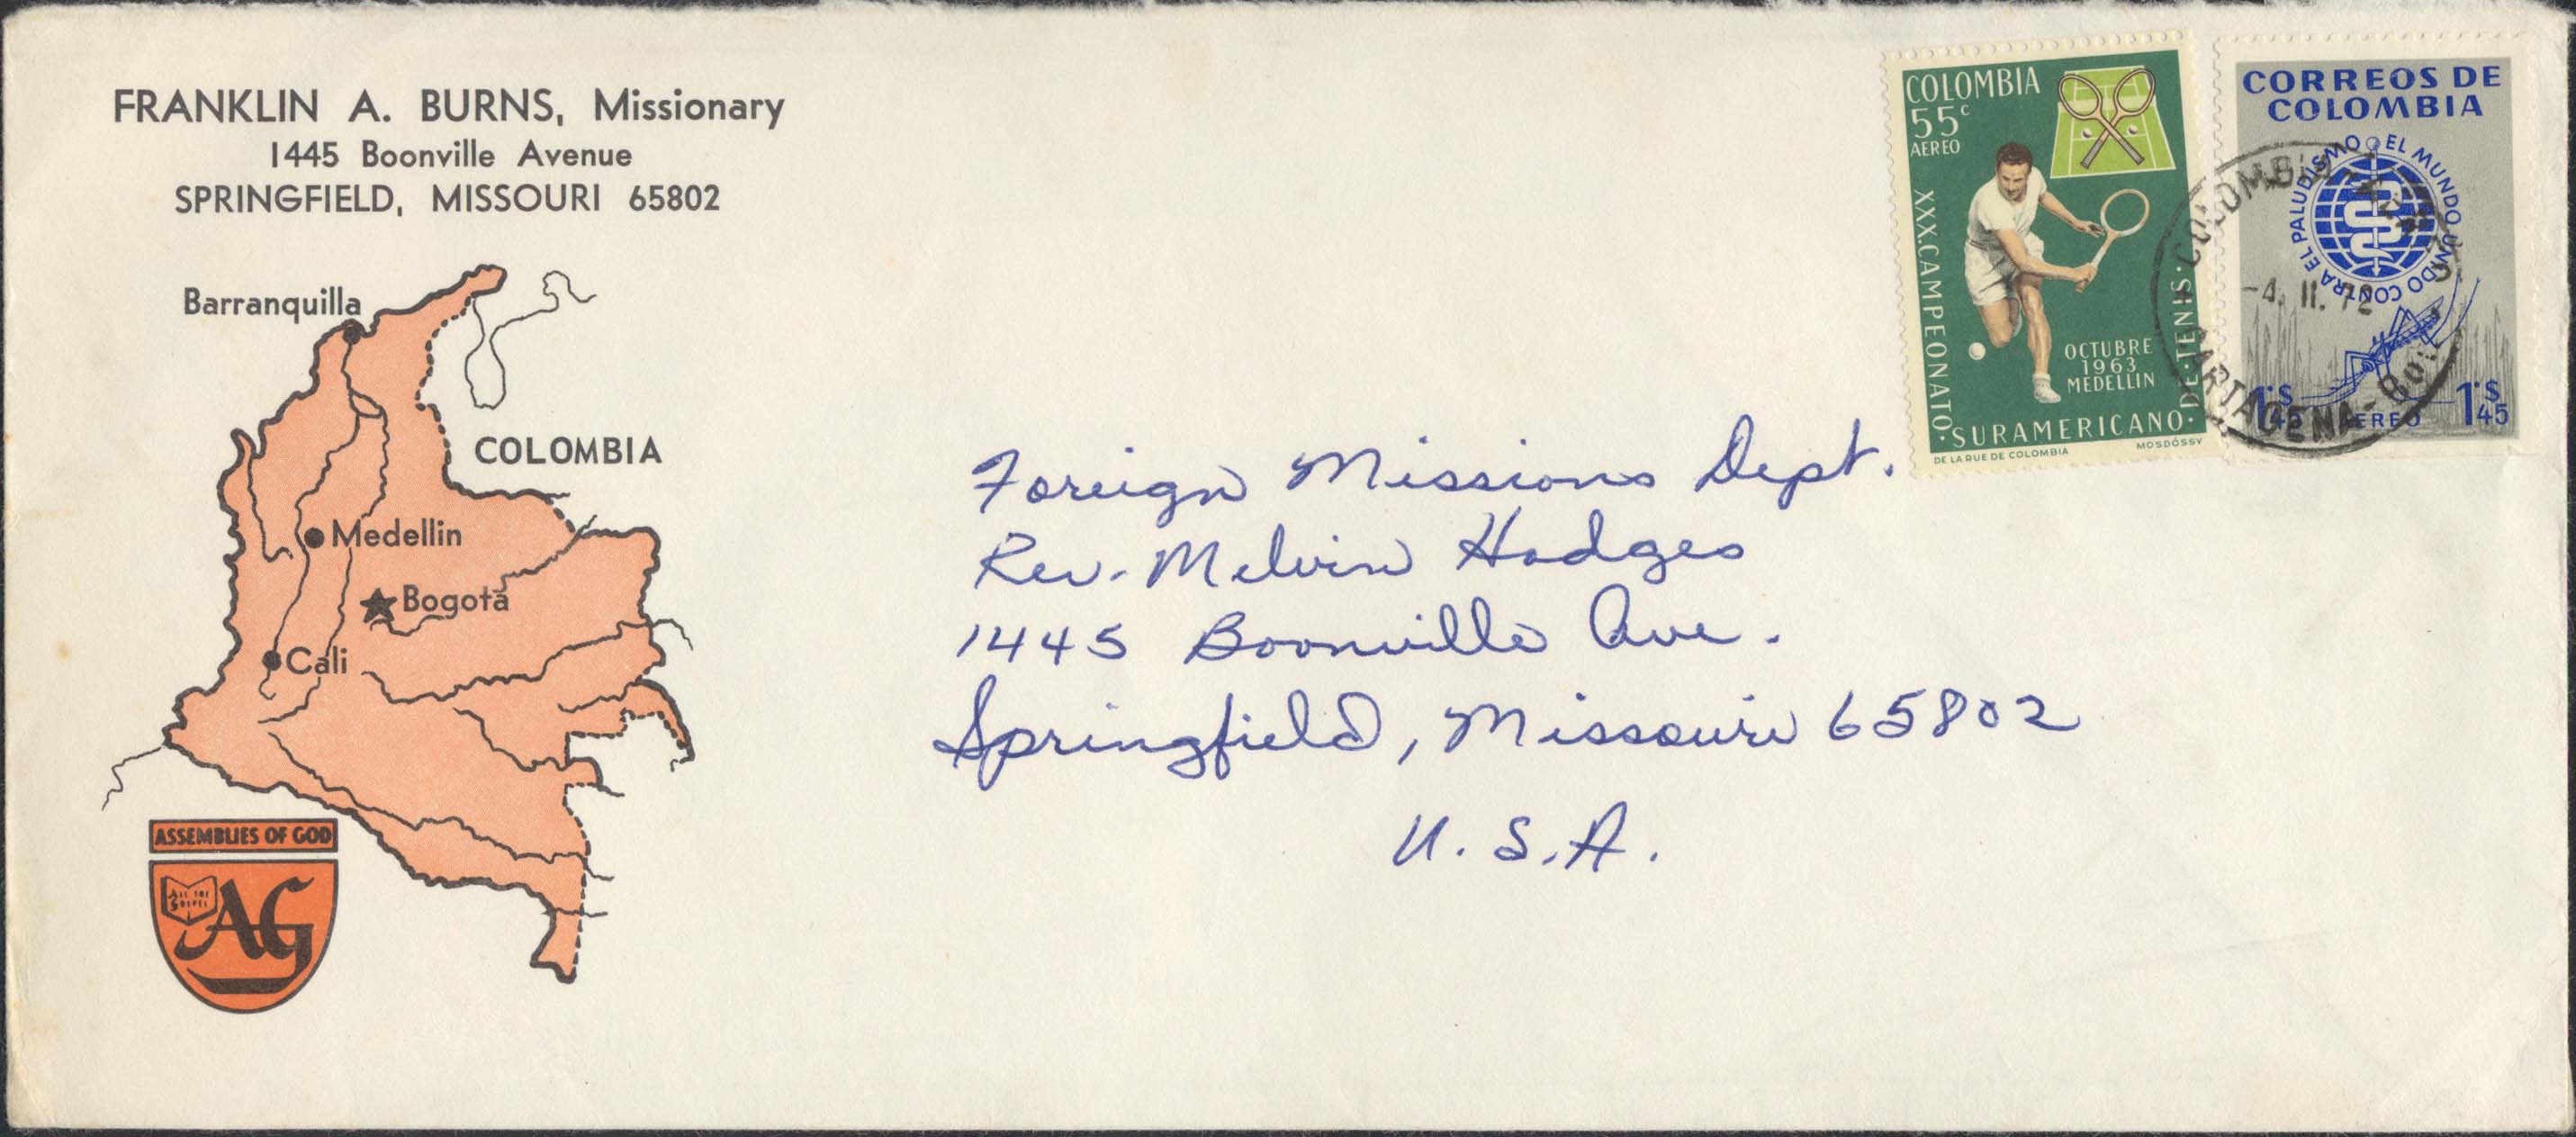 FRANKLIN A. BURNS, Missionary
1445 Boonville Avenue
SPRINGFIELD, MISSOURI 65802
Barranquilla
COLOMBIA
Medellin
Bogotá
Cali
ASSEMBLIES OF GOD
ALL THE
GOSPEL
AG
COLOMBIA
55c
AEREO
XXX.CAMPEONATO.
SURAMERICANO.
DE TENIS.
OCTUBRE
1963
MEDELLIN
DE LA RUE DE COLOMBIA
MOSDÓSSY
CORREOS DE
COLOMBIA
EL MUNDO UNIDO CONTRA EL PALUDISMO
1.$45
AEREO
1.$45
COLOMBIA
-4. II. 72
CARTAGENA-BOL
Foreign Missions Dept.
Rev. Melvin Hodges
1445 Boonville Ave.
Springfield, Missouri 65802
U.S.A.